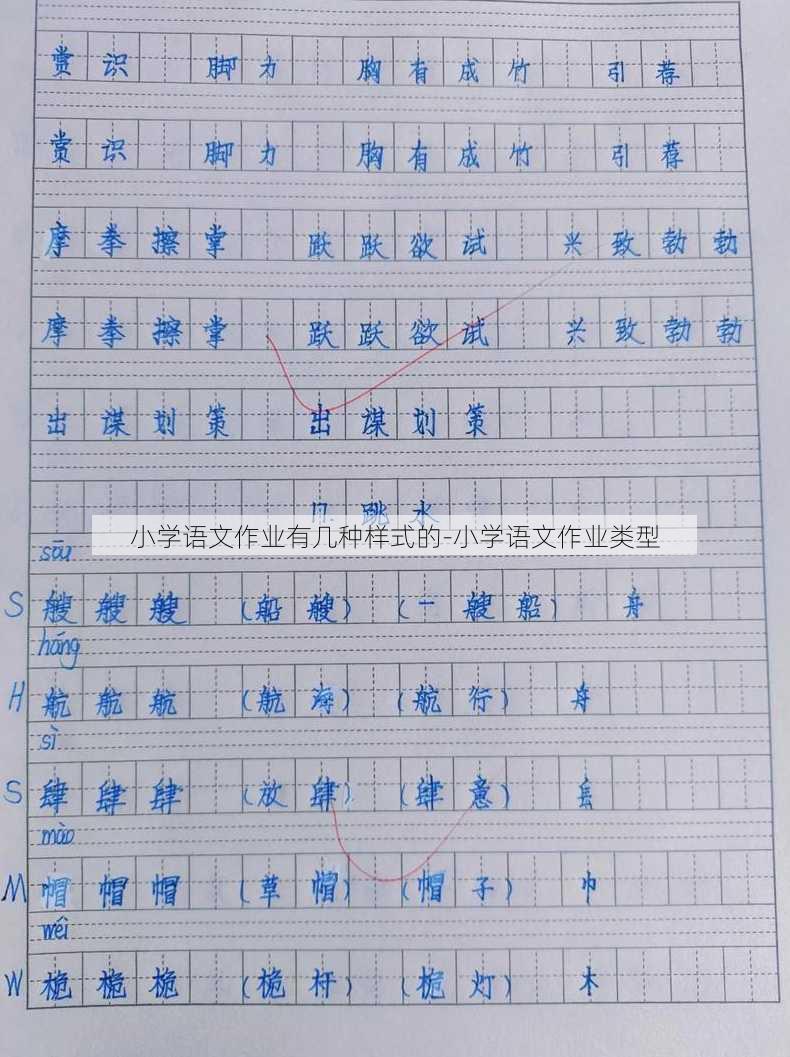 赏识 脚力 胸有成竹 引荐
赏识 脚力 胸有成竹 引荐
摩拳擦掌 跃跃欲试 兴致勃勃
摩拳擦掌 跃跃欲试 兴致勃勃
出谋划策 出谋划策
17. 跳水
小学语文作业有几种样式的-小学语文作业类型
sōu
S 艘艘艘 (船艘) (一艘船) 舟
háng
H 航航航 (航海) (航行) 舟
sì
S 肆肆肆 (放肆) (肆意) 镸
mào
M 帽帽帽 (草帽) (帽子) 巾
wéi
W 桅桅桅 (桅杆) (桅灯) 木